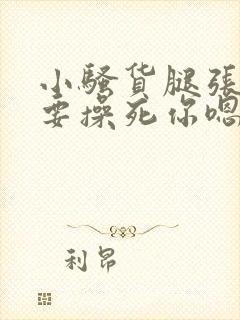 小騷货腿張
要操死你嗯
利昂